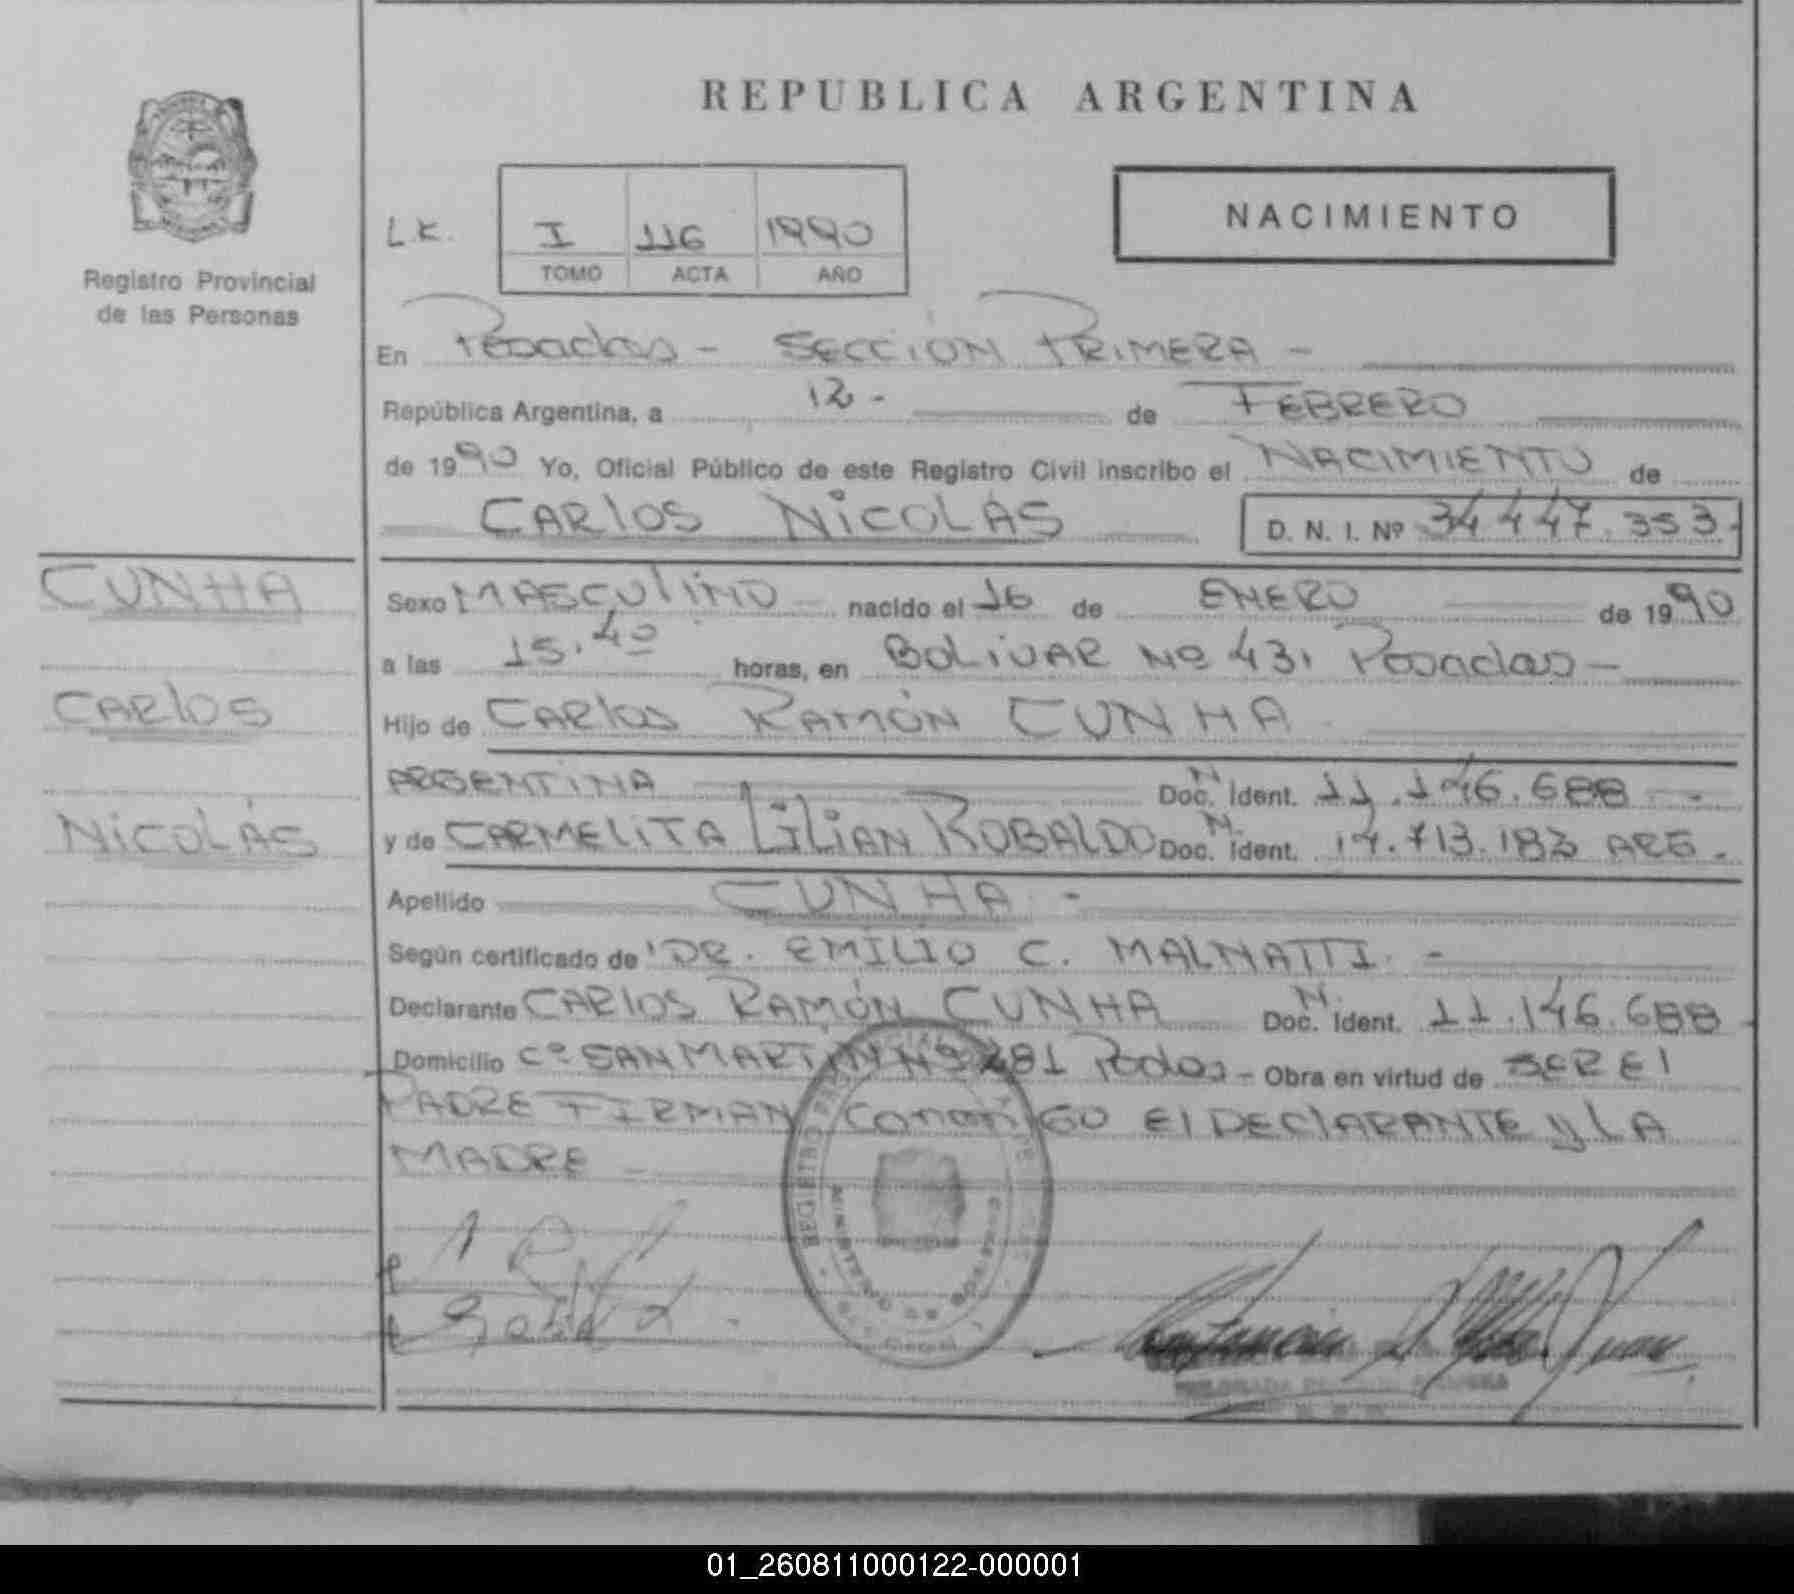 REPUBLICA ARGENTINA
Registro Provincial
de las Personas
L.K.
I 116 1990
TOMO ACTA AÑO
NACIMIENTO
En Posadas - SECCION PRIMERA -
República Argentina, a 12 - de FEBRERO
de 1990 Yo, Oficial Público de este Registro Civil inscribo el NACIMIENTO de
CARLOS NICOLÁS D. N. I. Nº 34447.353-
CUNHA
CARLOS
NICOLÁS
Sexo MASCULINO nacido el 16 de ENERO de 1990
a las 15.40 horas, en BOLIVAR Nº 431 Posadas -
Hijo de CARLOS RAMÓN CUNHA
ARGENTINA Doc. N. Ident. 11.146.688 -
y de CARMELITA LILIAN ROBALDO Doc. N. Ident. 17.713.183 ARG.
Apellido CUNHA -
Según certificado de DR. EMILIO C. MALNATTI. -
Declarante CARLOS RAMÓN CUNHA Doc. N. Ident. 11.146.688
Domicilio Cº SAN MARTIN Nº 281 Podas - Obra en virtud de SER El
PADRE FIRMAN conmigo El DEClARANTE y LA
MADRE
REGISTRO
MINISTERIO DE GOBIERNO
01_260811000122-000001